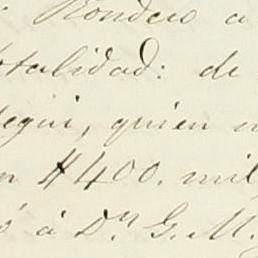 Rondero a
totalidad: de
legui, quien
$400. mil
à D.n G. M.